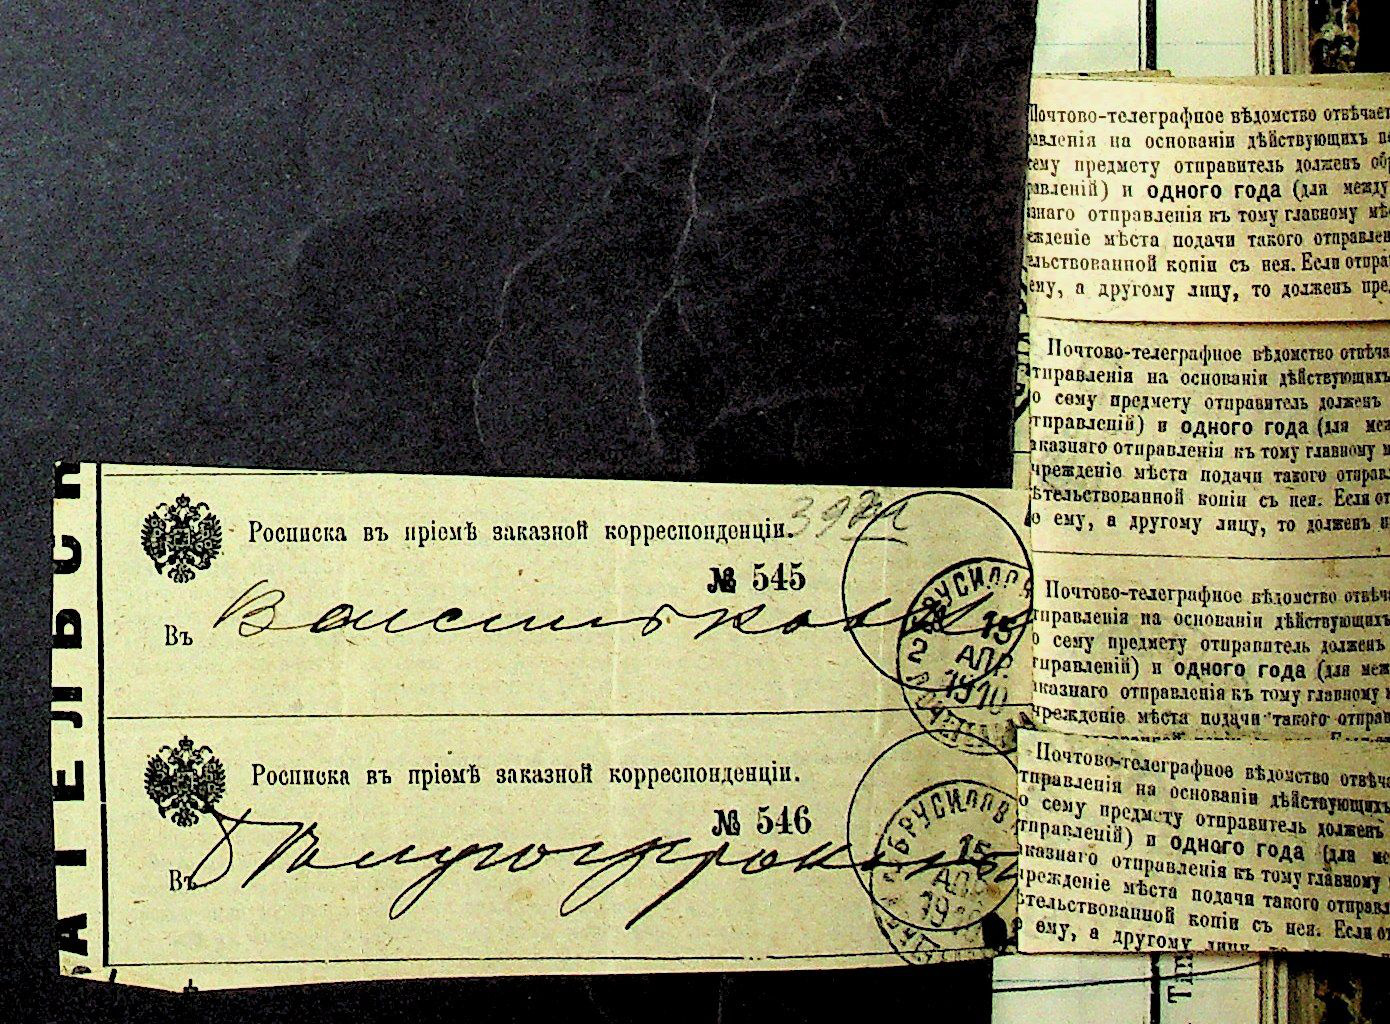 Почтово-телеграфное вѣдомство отвѣчает
авленія на основаніи дѣйствующихъ
сему предмету отправитель долженъ
равленій) и одного года (для между
знаго отправленія къ тому главному мѣ
еждение мѣста подачи такого отправлен
льствованной копіи съ нея. Если отпра
ему, а другому лицу, то долженъ пре
Почтово-телеграфное вѣдомство отвѣча
тправленія на основаніи дѣйствующихъ
о сему предмету отправитель долженъ
тправленій) и одного года (для меж
аказнаго отправленія къ тому главному
чрежденіе мѣста подачи такого отправ
ѣтельствованной копіи съ нея. Если от
о ему, а другому лицу, то долженъ
Почтово-телеграфное вѣдомство отвѣча
тправленія на основаніи дѣйствующихъ
о сему предмету отправитель долженъ
тправленій) и одного года (для меж
аказнаго отправленія къ тому главному
чрежденіе мѣста подачи такого отправ
Почтово-телеграфное вѣдомство отвѣча
тправленія на основаніи дѣйствующихъ
о сему предмету отправитель долженъ
тправленій) и одного года (для
аказнаго отправленія къ тому главному
чрежденіе мѣста подачи такого отправ
ѣтельствованной копіи съ нея. Если от
о ему, а другому лицу, то
АТЕЛЬСК
Росписка въ пріемѣ заказной корреспонденціи.
№ 545
Въ
2 БРУСИЛОВ
15
АПР
1910
Росписка въ пріемѣ заказной корреспонденціи.
№ 546
Въ
БРУСИЛОВ
15
АПР
191